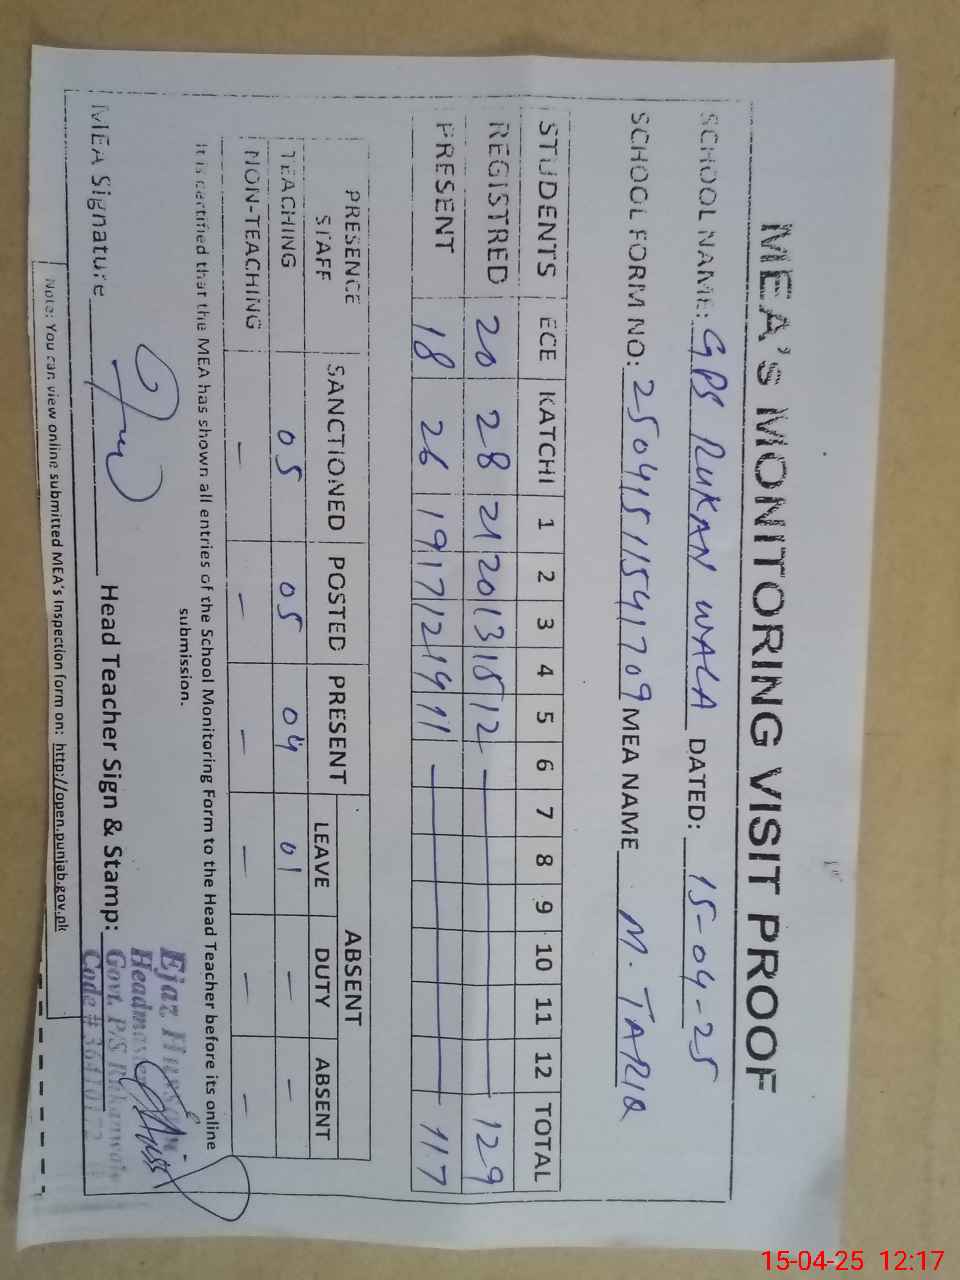 MEA's MONITORING VISIT PROOF
SCHOOL NAME: GPS RUKAN WALA DATED: 15-04-25
SCHOOL FORM NO: 25041511541709 MEA NAME M. TARIQ
STUDENTS ECE KATCHI 1 2 3 4 5 6 7 8 9 10 11 12 TOTAL
REGISTRED 20 28 21 20 13 15 12 — 129
PRESENT 18 26 19 17 12 14 11 — 117
PRESENCE STAFF SANCTIONED POSTED PRESENT ABSENT
LEAVE DUTY ABSENT
TEACHING 05 05 04 01 – –
NON-TEACHING – – – – – –
It is certified that the MEA has shown all entries of the School Monitoring Form to the Head Teacher before its online
submission.
Ejaz
Headmaster
MEA Signature Head Teacher Sign & Stamp: Govt. P/S
Code #
Note: You can view online submitted MEA's Inspection form on: http://open.punjab.gov.pk
15-04-25 12:17